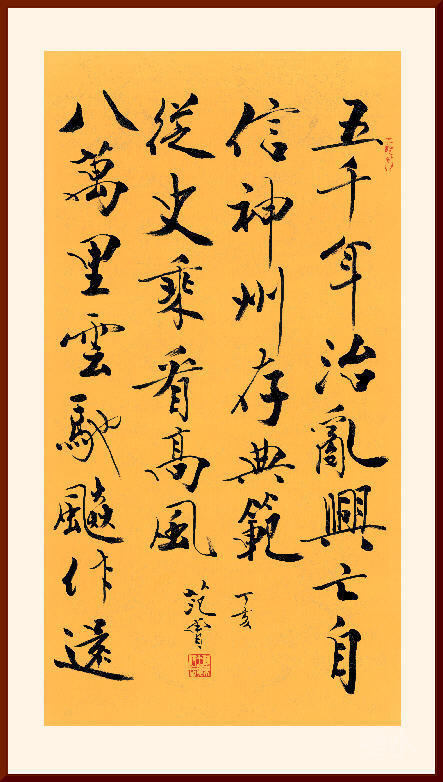 五千年治亂興亡自
信神州存典範
丁亥
八萬里雲馳飈作遠
從史乘看高風
范曾